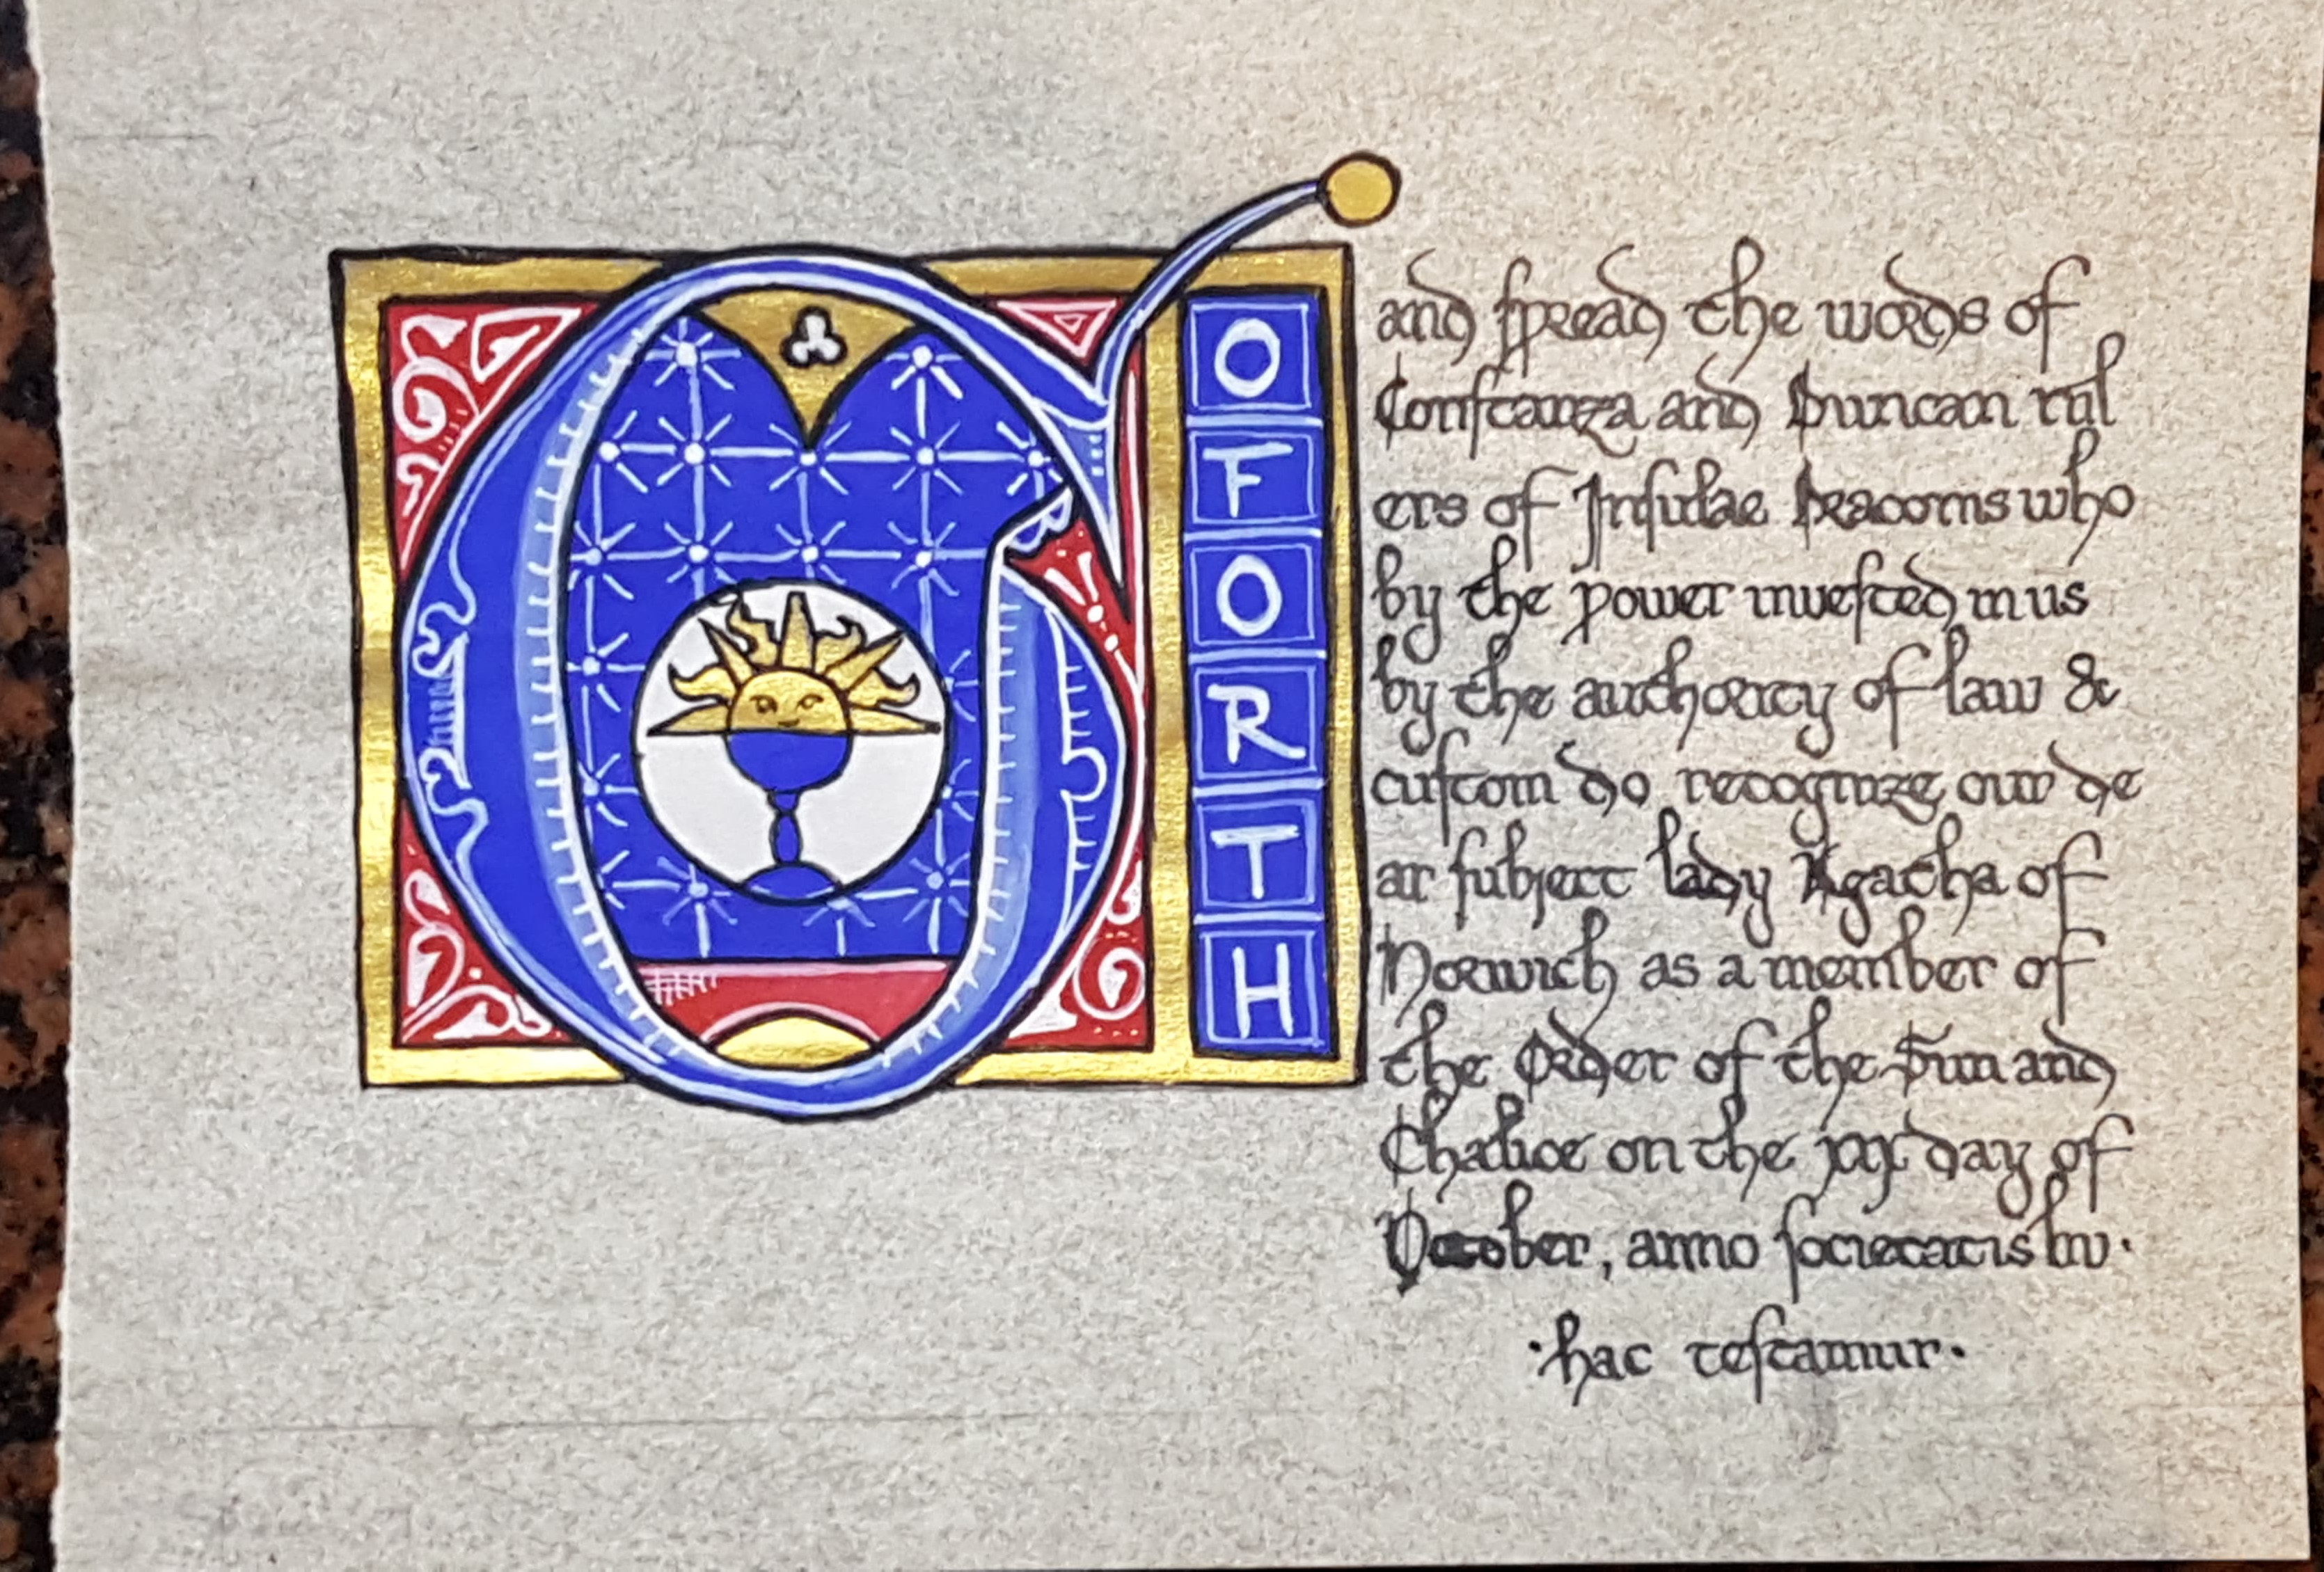 G
O
F
O
R
T
H
and ſpread the words of
Conſtanza and Duncan rul
ers of Inſulae Draconis who
by the power inveſted in us
by the authority of law &
cuſtom do recognize our de
ar ſubject lady Agatha of
Norwich as a member of
the Order of the Sun and
Chalice on the day of
October, anno ſocietatis liv.
·hac teſtamur·